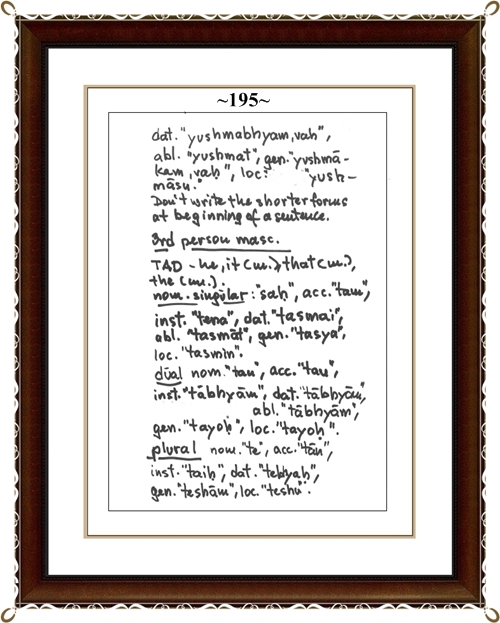 ~195~
dat. "yushmabhyam, vaḥ",
abl. "yushmat", gen. "yushmā-
kam, vaḥ", loc: "yush-
māsu."
Don't write the shorter forms
at beginning of a sentence.
3rd person masc.
TAD - he, it (m.), that (m.),
the (m.).
nom. singular: "saḥ", acc. "tam",
inst. "tena", dat. "tasmai",
abl. "tasmāt", gen. "tasya",
loc. "tasmin".
dūal nom. "tau", acc. "tau",
inst. "tābhyām", dat. "tābhyām",
abl. "tābhyām",
gen. "tayoḥ", loc. "tayoḥ".
plural nom. "te", acc. "tān",
inst. "taiḥ", dat. "tebyaḥ",
gen. "teshām", loc. "teshu".